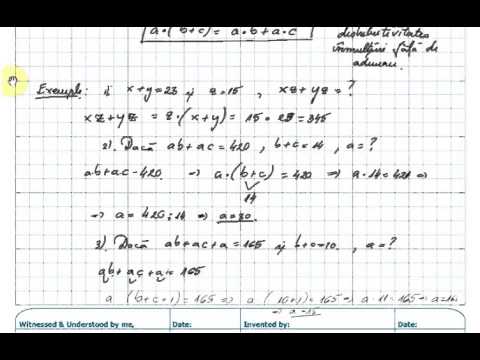 a·(b+c) = a·b+a·c
distributivitatea
înmulțirii față de
adunare.
Exemple: 1) x+y=23 și z=15, xz+yz=?
xz+yz = z·(x+y) = 15·23=345
2). Dacă ab+ac=420, b+c=14, a=?
ab+ac=420. ⇒ a·(b+c)=420 ⇒ a·14=420 ⇒
14
⇒ a=420:14 ⇒ a=30.
3). Dacă ab+ac+a=165 și b+c=10, a=?
ab+ac+a=165
a (b+c+1)=165 ⇒ a (10+1)=165 ⇒ a·11=165 ⇒ a=165
⇒ a=15
Witnessed & Understood by me, Date: Invented by: Date: